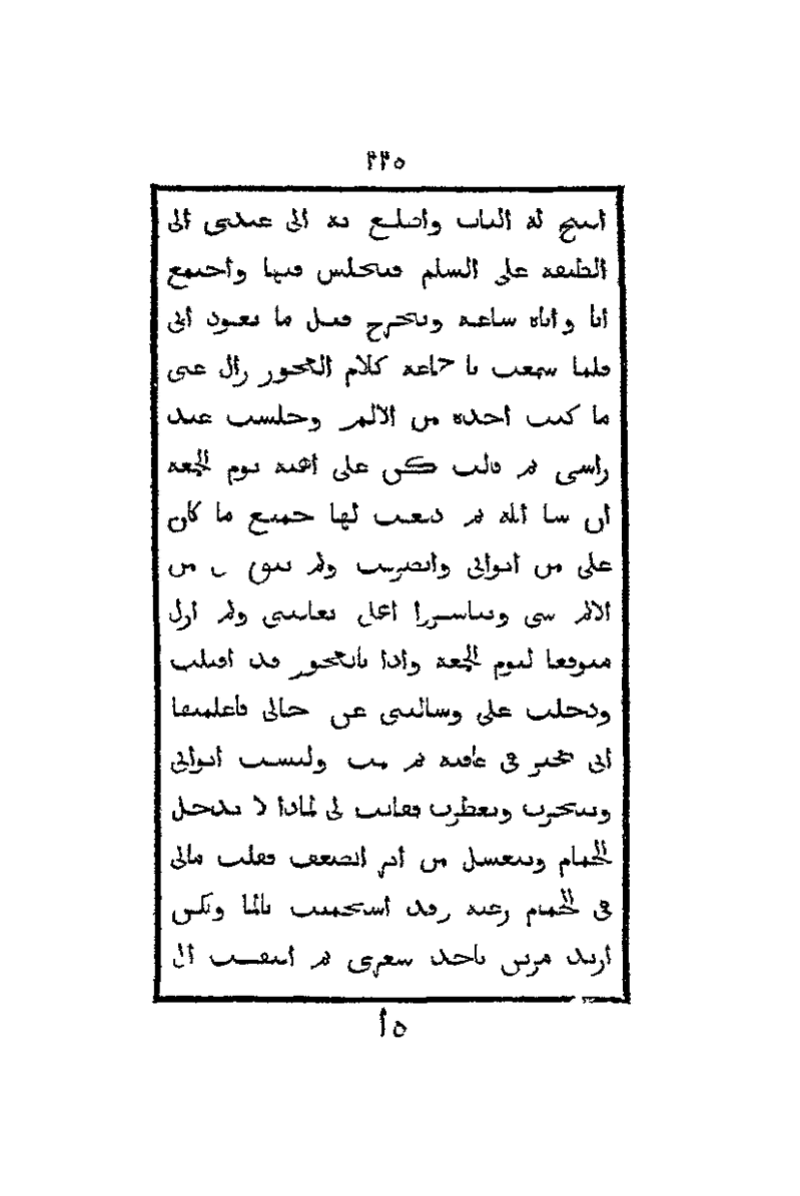 ٢٢٥
افتح له الباب واطلع به الى عندى الى
الطبقه على السلم فتجلس فيها واجتمع
انا واياه ساعه ويخرج قبل ما يعود ابى
فلما سمعت يا جماعه كلام العجوز زال عنى
ما كنت اجده من الالم وجلست عند
راسى ثم قالت كن على اهبه يوم الجمعه
ان شا الله ثم دفعت لها جميع ما كان
على من اثوابى وانصرفت ولم يبق بى من
الالم شى وتباشروا اهلى بعافيتى ولم ازل
متوقعا ليوم الجمعه واذا بالعجوز قد اقبلت
ودخلت على وسالتنى عن حالى فاعلمتها
انى بخير فى عافيه ثم قمت ولبست اثوابى
وتبخرت وتعطرت فقالت لى لماذا لا تدخل
الحمام وتغسل من اثر الضعف فقلت مالى
فى الحمام رغبه وقد استحميت بالما ولكن
اريد مزين ياخد شعرى ثم التفت الى
١٥